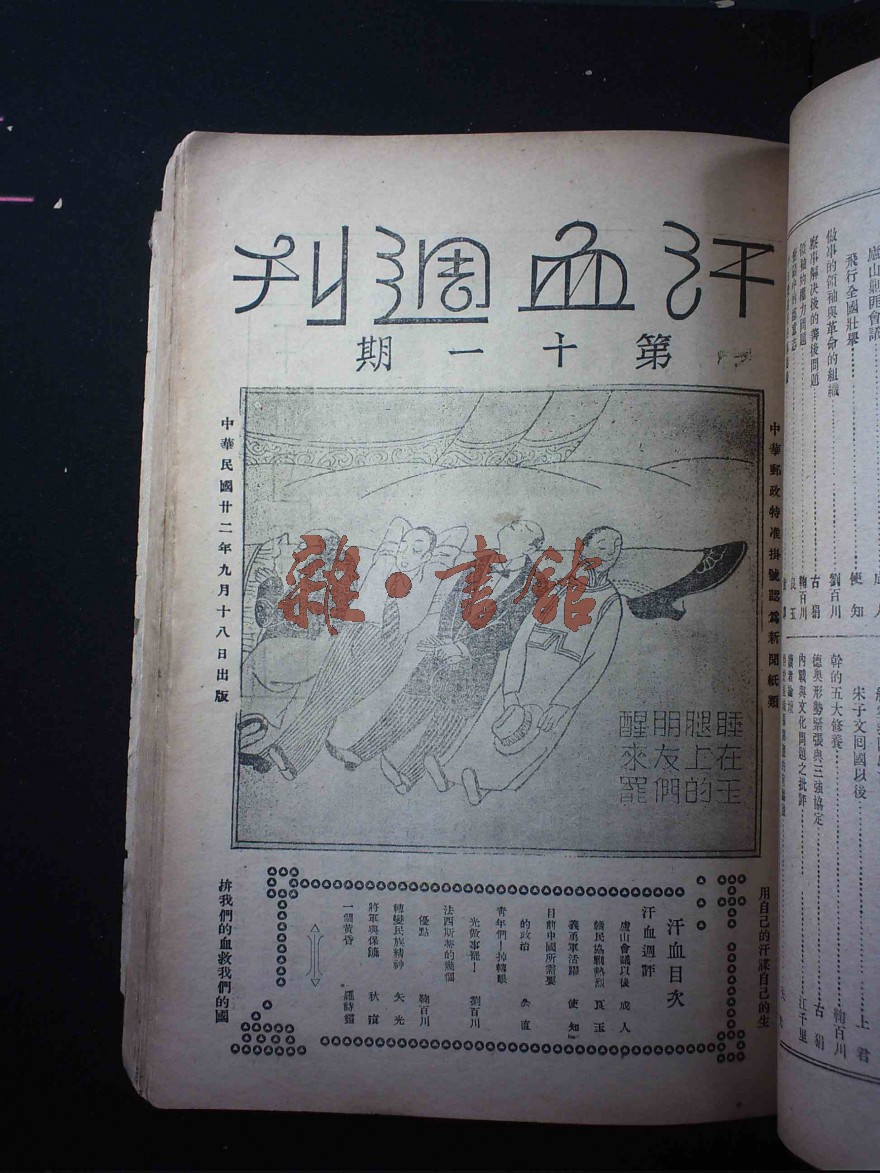 汗血週刊
第十一期
中華郵政特准掛號認為新聞紙類
中華民國廿二年九月十八日出版
睡在玉
腿上的
朋友們
醒來罷
雜·書館
用自己的汗謀自己的生
拚我們的血救我們的國
汗血目次
汗血週評
廬山會議以後 成人
贛民協剿熱烈 良玉
義勇軍活躍 使知
目前中國所需要
的政治 直
青年們！掉轉眼
光做事罷！ 劉百川
法西斯蒂的幾個
優點 鞠百川
轉變民族精神 矢光
將軍與保鑣 秋
一個黃昏
廬山剿匪會議 成人
飛行全國壯舉 使知
做事的領袖與革命的組織 劉百川
察事解決後的善後問題 古狷
領袖的權力問題 鞠百川
良玉
宋子文回國以後 上君
幹的五大修養 鞠百川
德奧形勢緊張與三強協定 古狷
內戰與文化問題之批評 江千里